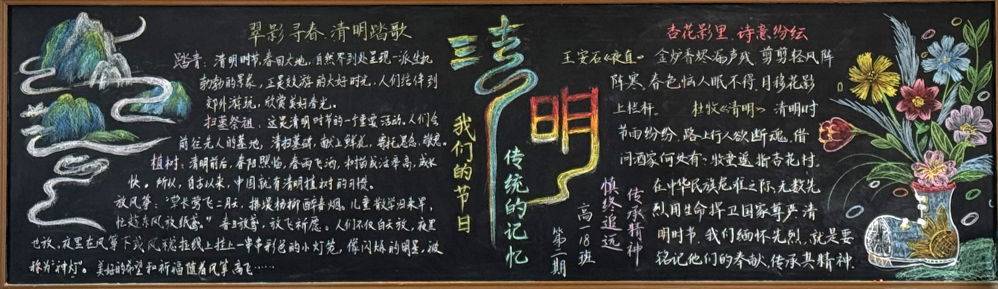 翠影寻春,清明踏歌
踏青:清明时节,春回大地,自然界到处呈现一派生机
勃勃的景象,正是郊游的大好时光,人们结伴到
郊外游玩,欣赏美好春光。
扫墓祭祖:这是清明时节的一个重要活动,人们会
前往先人的墓地,清扫墓碑,献上鲜花,寄托思念、敬意。
植树:清明前后,春阳照临,春雨飞洒,树苗成活率高,成长
快。所以,自古以来,中国就有清明植树的习惯。
放风筝:"草长莺飞二月天,拂堤杨柳醉春烟。儿童散学归来早,
忙趁东风放纸鸢。"春日放鸢,放飞祈愿。人们不仅白天放,夜里
也放。夜里在风筝下或风稳拉线上挂上一串串彩色的小灯笼,像闪烁的明星,被
称为"神灯"。美好的希望和祈福随着风筝高飞……
清
明
我们的节日
传统的记忆
传承精神
慎终追远
高一18班
第二期
杏花影里,诗意纷绘
王安石《夜直》 金炉香烬漏声残,剪剪轻风阵
阵寒,春色恼人眠不得,月移花影
上栏杆。 杜牧《清明》 清明时
节雨纷纷,路上行人欲断魂,借
问酒家何处有?牧童遥指杏花村。
在中华民族危难之际,无数先
烈用生命捍卫国家尊严,清
明时节,我们缅怀先烈,就是要
铭记他们的奉献,传承其精神.